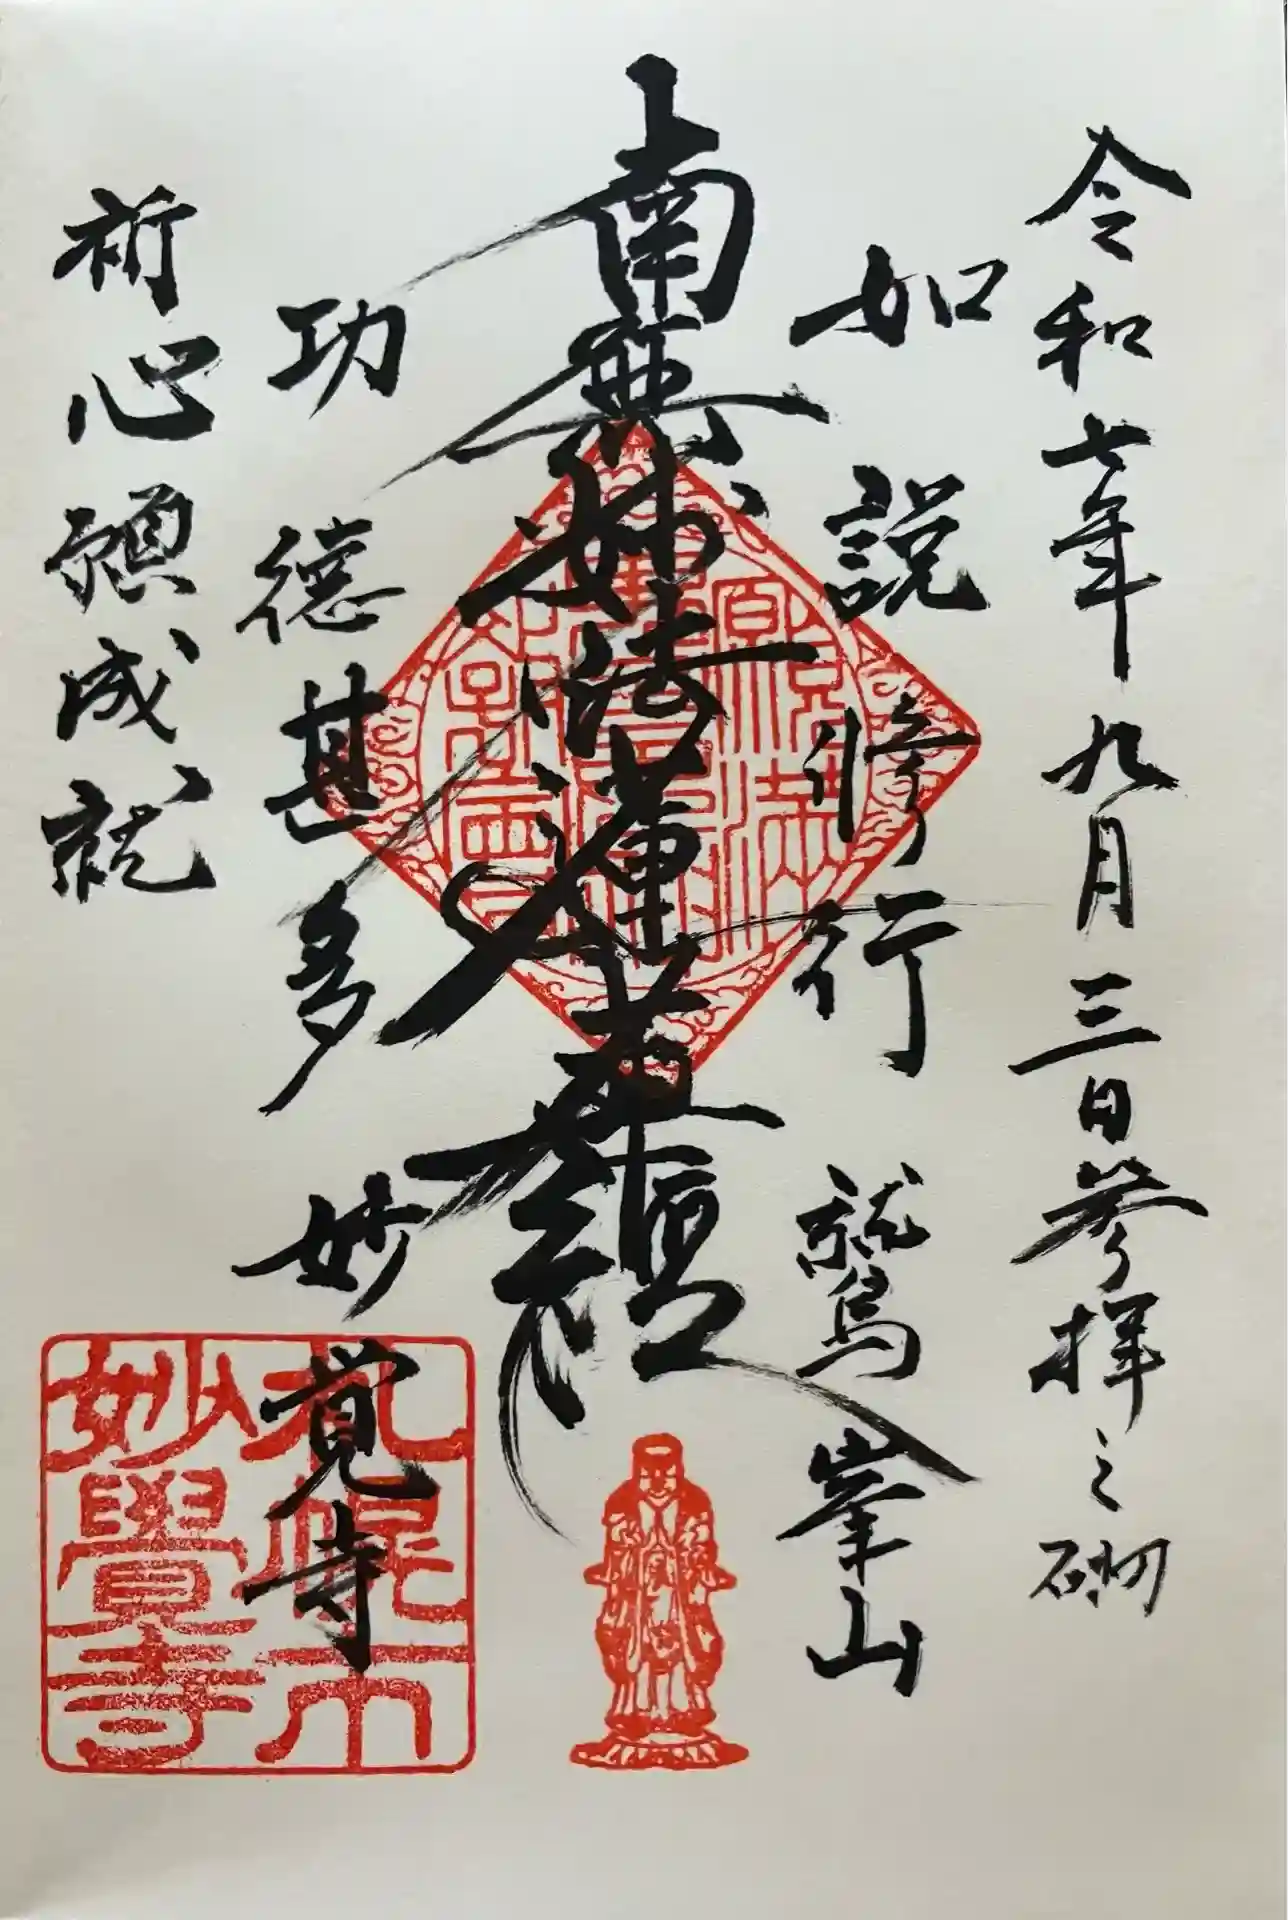 令和七年九月三日參拝之砌
如説修行 鷲峯山
南無妙法蓮華経
功徳甚多 妙覚寺
祈心願成就
札幌市
妙覺寺